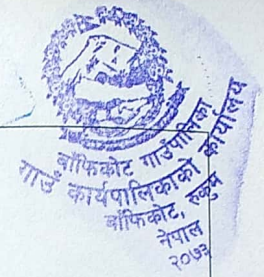 बाँफिकोट गाउँपालिका
गाउँ कार्यपालिकाको कार्यालय
बाँफिकोट, रुकुम
नेपाल
२०७३